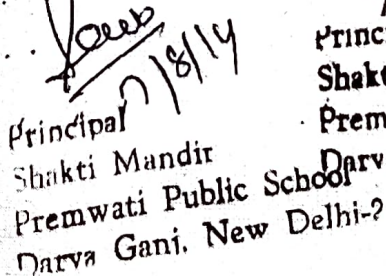 7/8/14
Principal
Shakti Mandir
Premwati Public School
Darya Ganj, New Delhi-2
Princ
Shakt
Prem
Darv